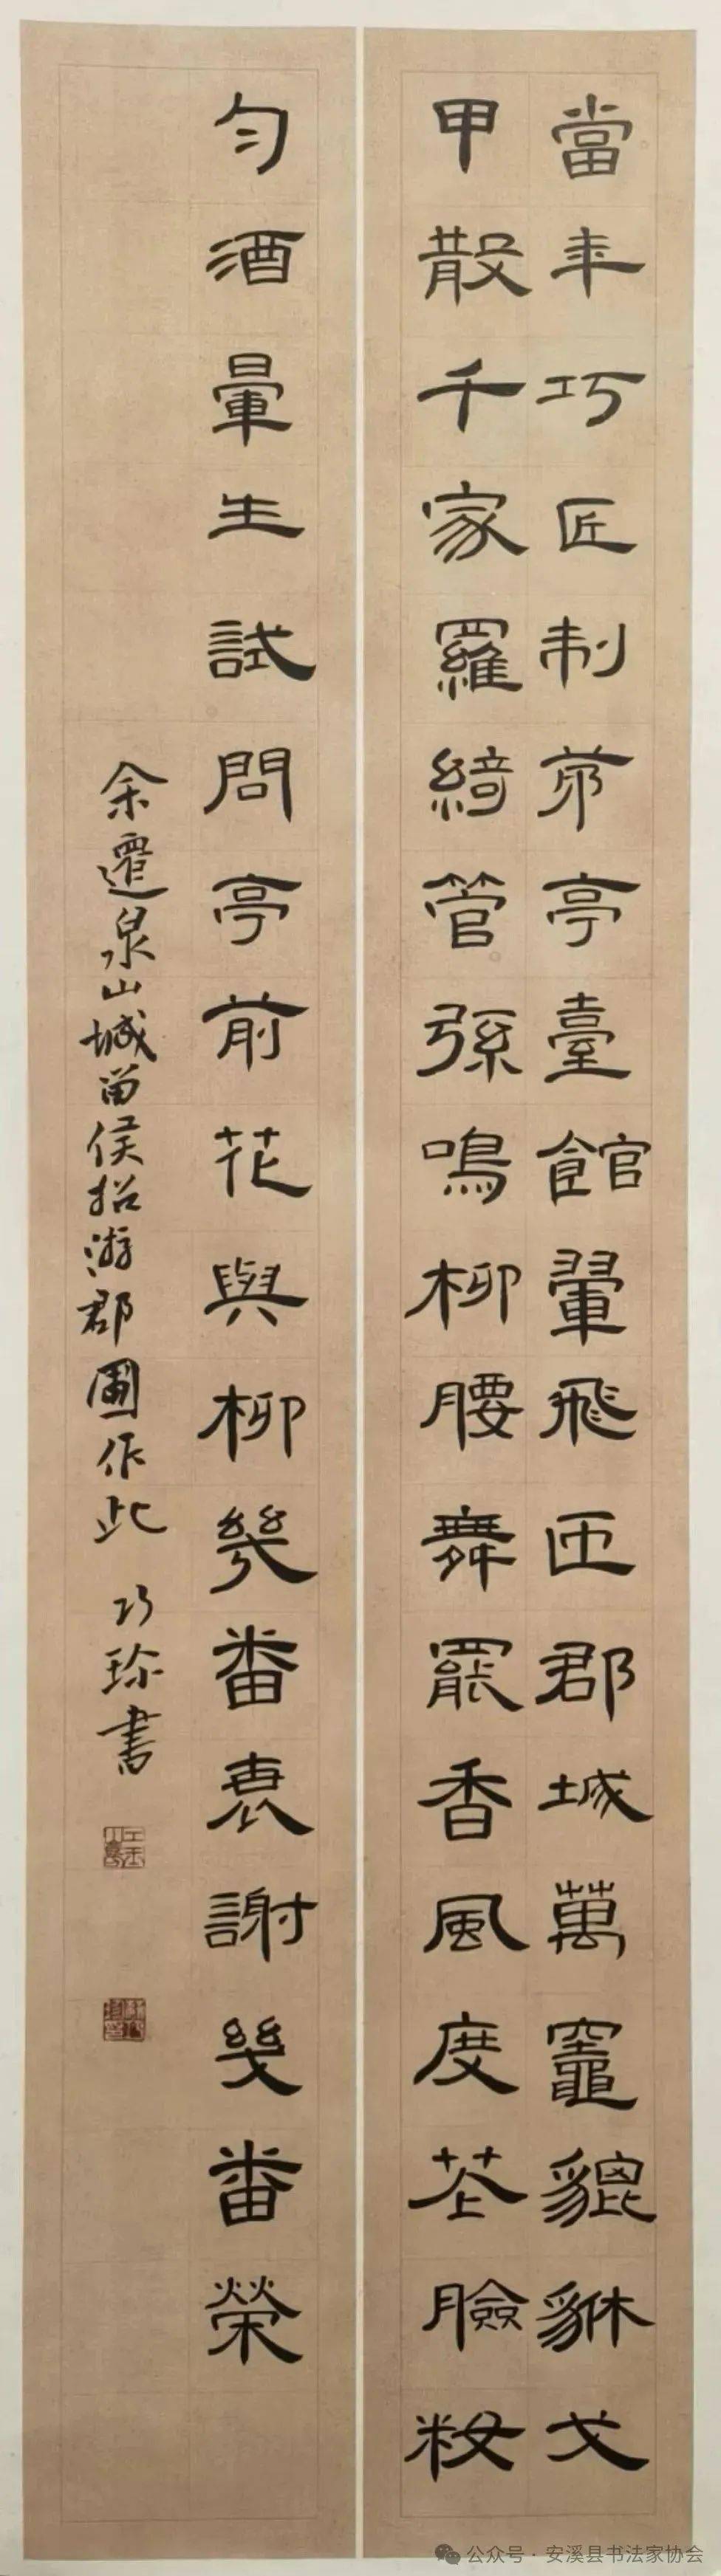 當年巧匠制茆亭臺館翬飛匝郡城萬竈貔貅戈
甲散千家羅綺管弦鳴柳腰舞罷香風度花臉粧
勻酒暈生試問亭前花與柳幾番衰謝幾番榮
余遷泉山城留侯招游郡圃作此 巧珍書
公众号·安溪县书法家协会